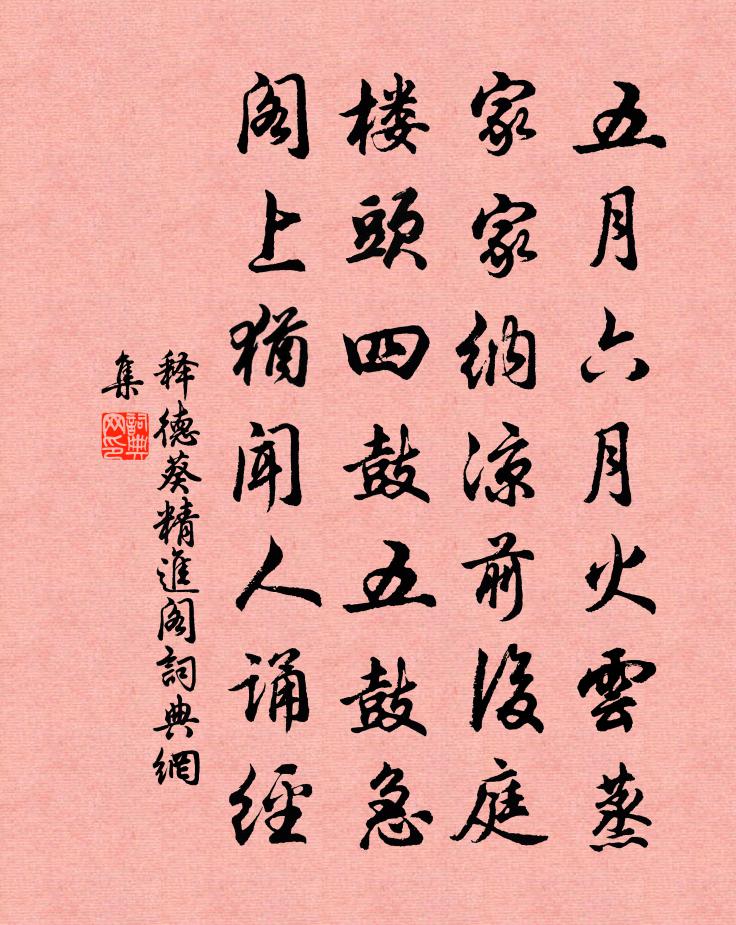 五月六月火雲蒸
家家納凉前後庭
楼頭四鼓五鼓急
阁上猶闻人诵經
释德葵精進阁詞典網
集
詞典
网印